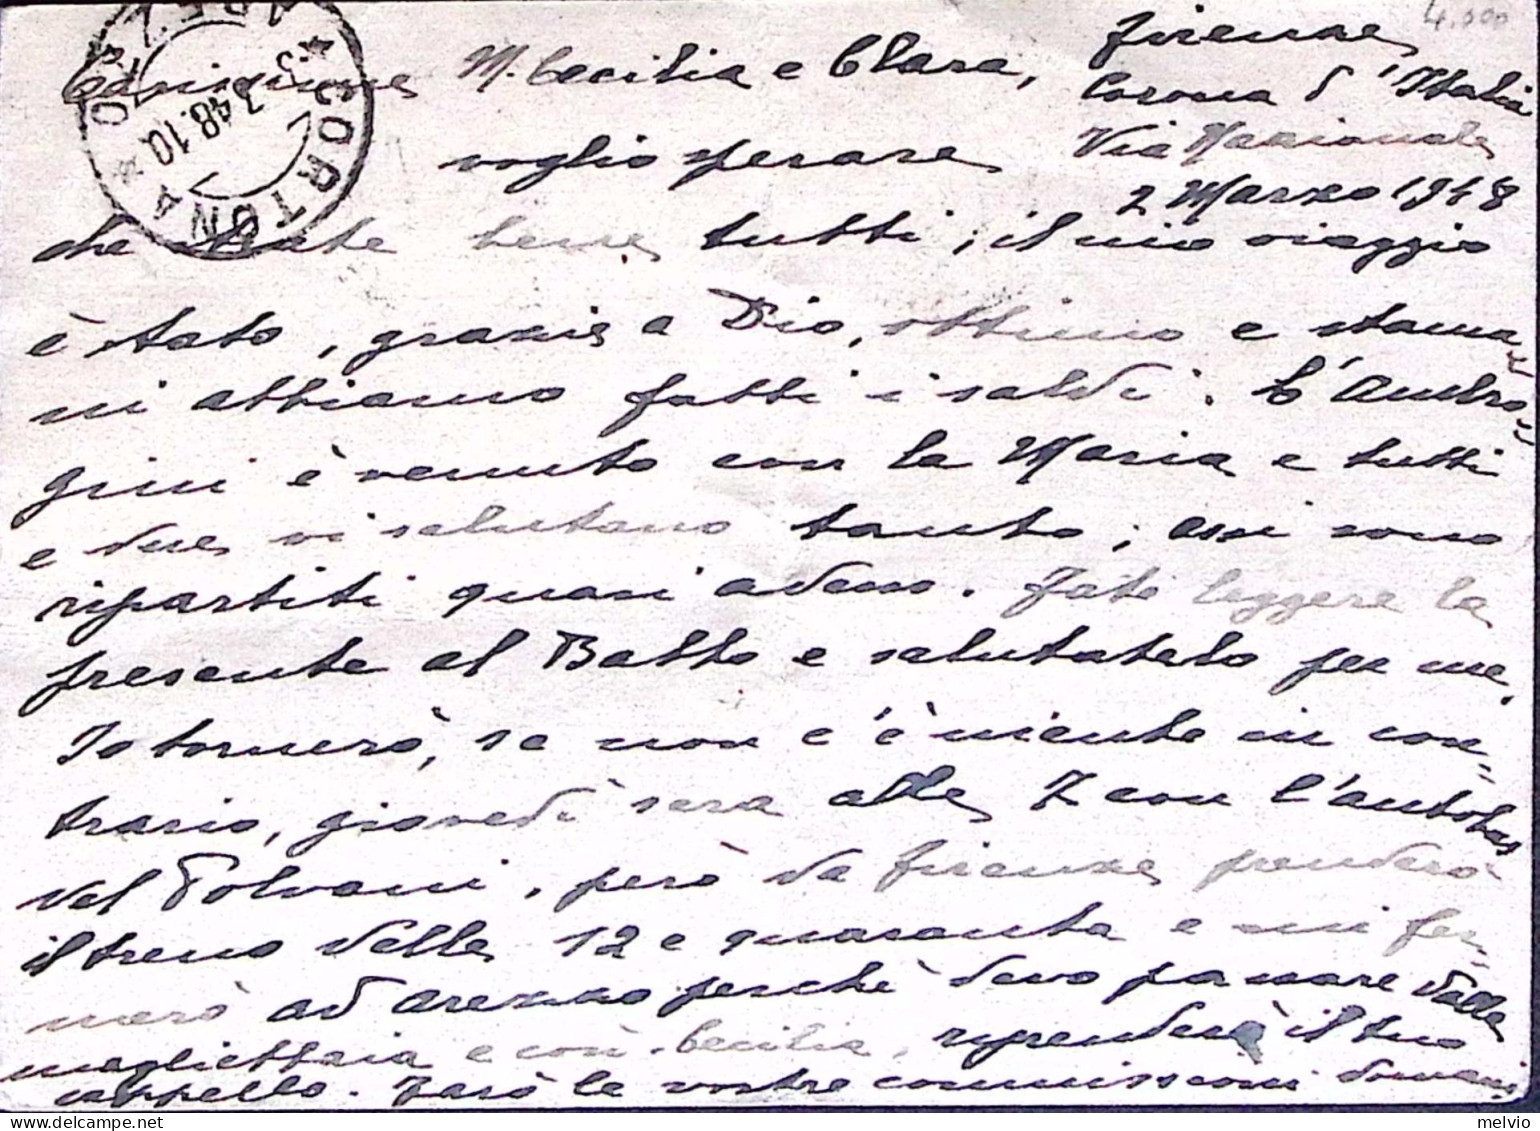 4.000
Firenze
Corona d'Italia
Via Nazionale
2 Marzo 1948
Carissime M. Cecilia e Clara,
voglio sperare
che state bene tutti; il mio viaggio
è stato, grazie a Dio, ottimo e stama-
ni abbiamo fatti i saldi. L'Ambro-
gini è venuto con la Maria e tutti
e due vi salutano tanto; essi sono
ripartiti quasi adesso. Fate leggere la
presente al Babbo e salutatelo per me.
Io tornerò, se non c'è niente in con-
trario, giovedì sera alle 7 con l'autobus
del Polvani, però da Firenze prenderò
il treno delle 12 e quaranta e mi fer-
merò ad Arezzo perchè devo passare dalla
magliettaia e così Cecilia, riprenderà il tuo
cappello. Farò le vostre commissioni domani
* CORTONA * AREZZO
3.48.10
melvio